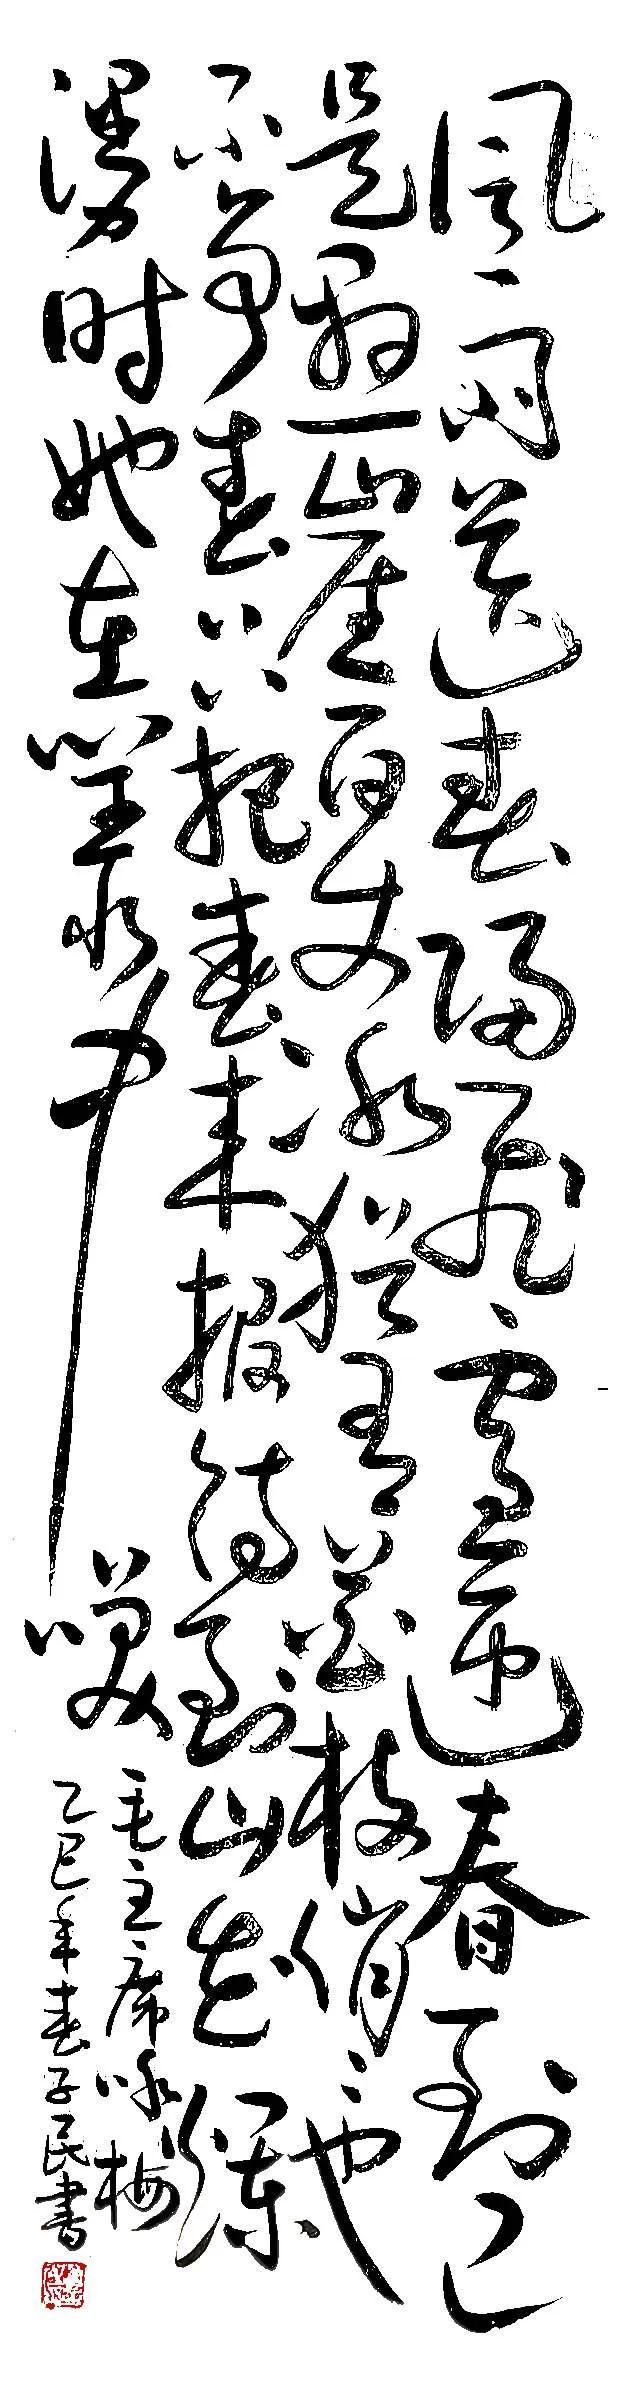 風雨送春歸飛雪迎春到已
是懸崖百丈冰猶有花枝俏々也
不争春只把春来報待到山花爛
漫时她在叢中笑
毛主席咏梅
乙巳年春子民書